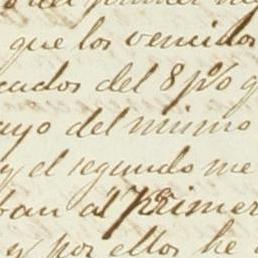 del primer
que los vencidos
cados del 8 p%
ayo del mismo
y el segundo me
ban al primer
y por ellos he